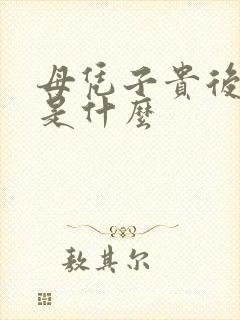 母凭子貴後
是什麼
敖其尔